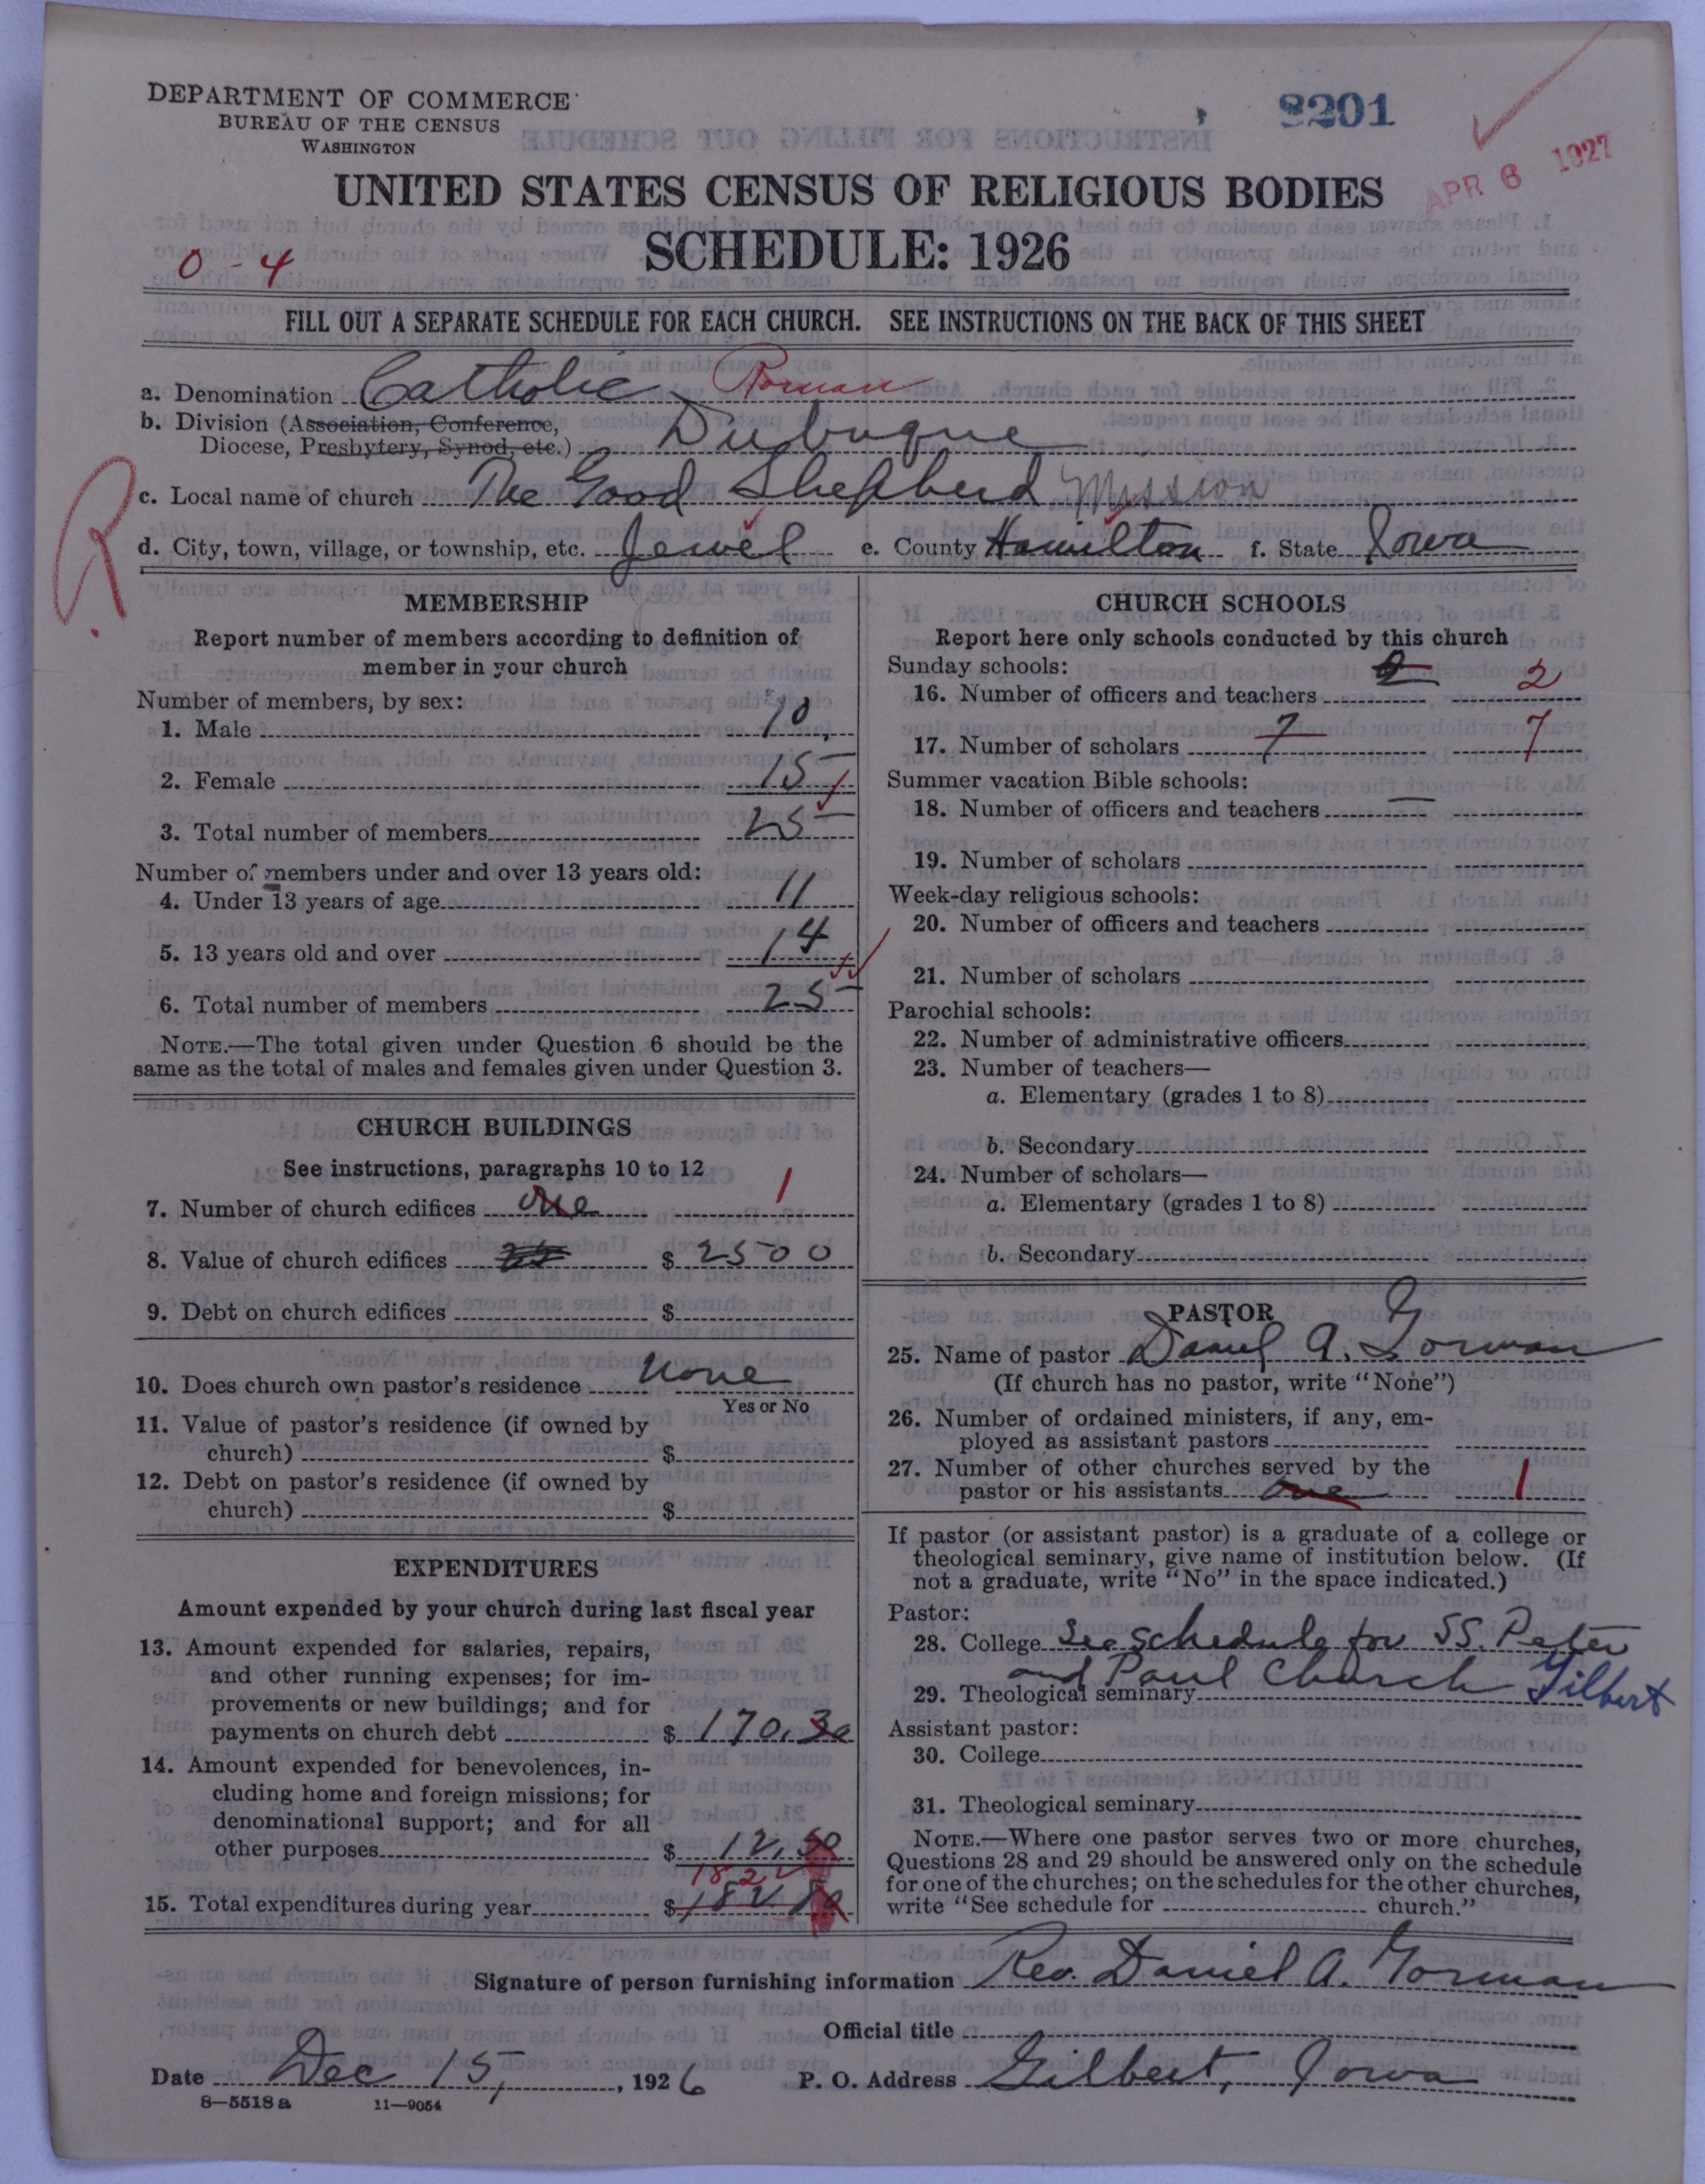 DEPARTMENT OF COMMERCE
BUREAU OF THE CENSUS
WASHINGTON
8201
APR 6 1927
UNITED STATES CENSUS OF RELIGIOUS BODIES
SCHEDULE: 1926
0-4
FILL OUT A SEPARATE SCHEDULE FOR EACH CHURCH. SEE INSTRUCTIONS ON THE BACK OF THIS SHEET
a. Denomination Catholic Roman
b. Division (Association, Conference,
Diocese, Presbytery, Synod, etc.) Dubuque
c. Local name of church The Good Shepherd Mission
d. City, town, village, or township, etc. Jewel e. County Hamilton f. State Iowa
MEMBERSHIP
Report number of members according to definition of
member in your church
Number of members, by sex:
1. Male 10
2. Female 15
3. Total number of members 25
Number of members under and over 13 years old:
4. Under 13 years of age 11
5. 13 years old and over 14
6. Total number of members 25
NOTE.—The total given under Question 6 should be the
same as the total of males and females given under Question 3.
CHURCH BUILDINGS
See instructions, paragraphs 10 to 12
7. Number of church edifices one 1
8. Value of church edifices $ 2500
9. Debt on church edifices $
10. Does church own pastor's residence None
Yes or No
11. Value of pastor's residence (if owned by
church) $
12. Debt on pastor's residence (if owned by
church) $
EXPENDITURES
Amount expended by your church during last fiscal year
13. Amount expended for salaries, repairs,
and other running expenses; for im-
provements or new buildings; and for
payments on church debt $ 170.30
14. Amount expended for benevolences, in-
cluding home and foreign missions; for
denominational support; and for all
other purposes $ 12.50
182
15. Total expenditures during year $ 182.80
CHURCH SCHOOLS
Report here only schools conducted by this church
Sunday schools:
16. Number of officers and teachers 2 2
17. Number of scholars 7 7
Summer vacation Bible schools:
18. Number of officers and teachers —
19. Number of scholars
Week-day religious schools:
20. Number of officers and teachers
21. Number of scholars
Parochial schools:
22. Number of administrative officers
23. Number of teachers—
a. Elementary (grades 1 to 8)
b. Secondary
24. Number of scholars—
a. Elementary (grades 1 to 8)
b. Secondary
PASTOR
25. Name of pastor Daniel A. Gorman
(If church has no pastor, write "None")
26. Number of ordained ministers, if any, em-
ployed as assistant pastors
27. Number of other churches served by the
pastor or his assistants one 1
If pastor (or assistant pastor) is a graduate of a college or
theological seminary, give name of institution below. (If
not a graduate, write "No" in the space indicated.)
Pastor:
28. College See schedule for SS. Peter
and Paul Church Gilbert
29. Theological seminary
Assistant pastor:
30. College
31. Theological seminary
NOTE.—Where one pastor serves two or more churches,
Questions 28 and 29 should be answered only on the schedule
for one of the churches; on the schedules for the other churches,
write "See schedule for church."
Signature of person furnishing information Rev. Daniel A. Gorman
Official title
Date Dec 15, 1926 P. O. Address Gilbert, Iowa
8—5518 a 11—9054